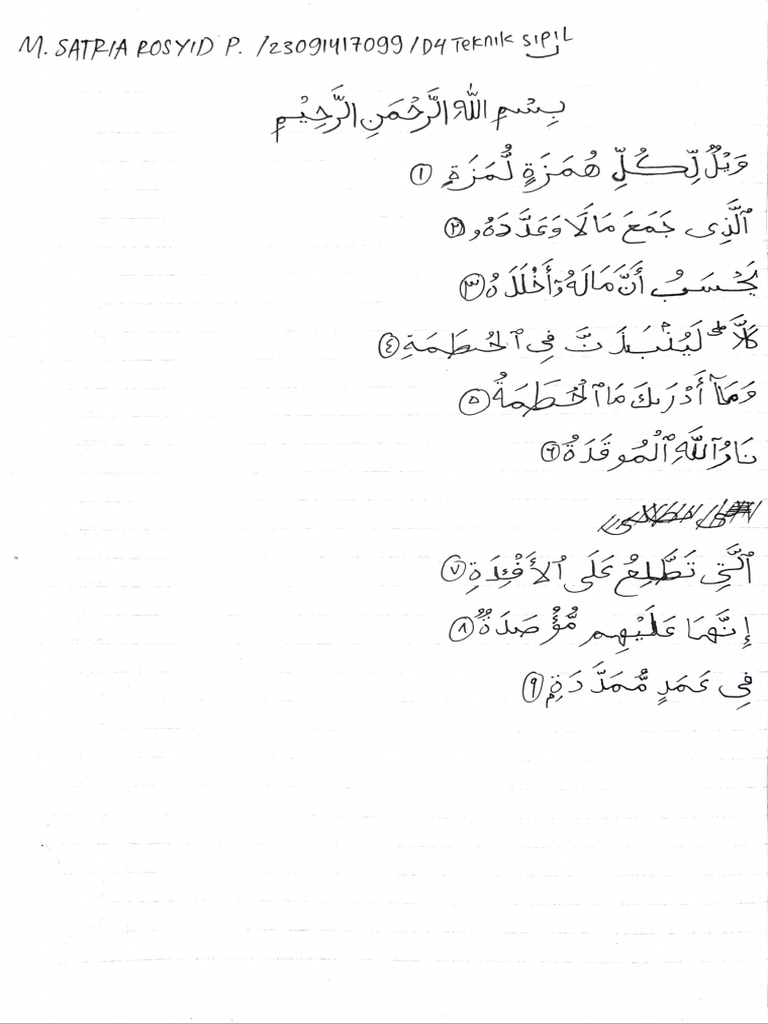 M. SATRIA ROSYID P. /23091417099/D4 Teknik SIPIL
بِسْمِ اللّٰهِ الرَّحْمَنِ الرَّحِيْمِ
وَيْلٌ لِّكُلِّ هُمَزَةٍ لُّمَزَةٍ ١
ٱلَّذِى جَمَعَ مَالًا وَعَدَّدَهُۥ ٢
يَحْسَبُ أَنَّ مَالَهُۥٓ أَخْلَدَهُ ٣
كَلَّا ۖ لَيُنۢبَذَنَّ فِى ٱلْحُطَمَةِ ٤
وَمَآ أَدْرَىٰكَ مَا ٱلْحُطَمَةُ ٥
نَارُ ٱللَّهِ ٱلْمُوقَدَةُ ٦
ٱلَّتِى تَطَّلِعُ عَلَى ٱلْأَفْـِٔدَةِ ٧
إِنَّهَا عَلَيْهِم مُّؤْصَدَةٌ ٨
فِى عَمَدٍ مُّمَدَّدَةٍۭ ٩